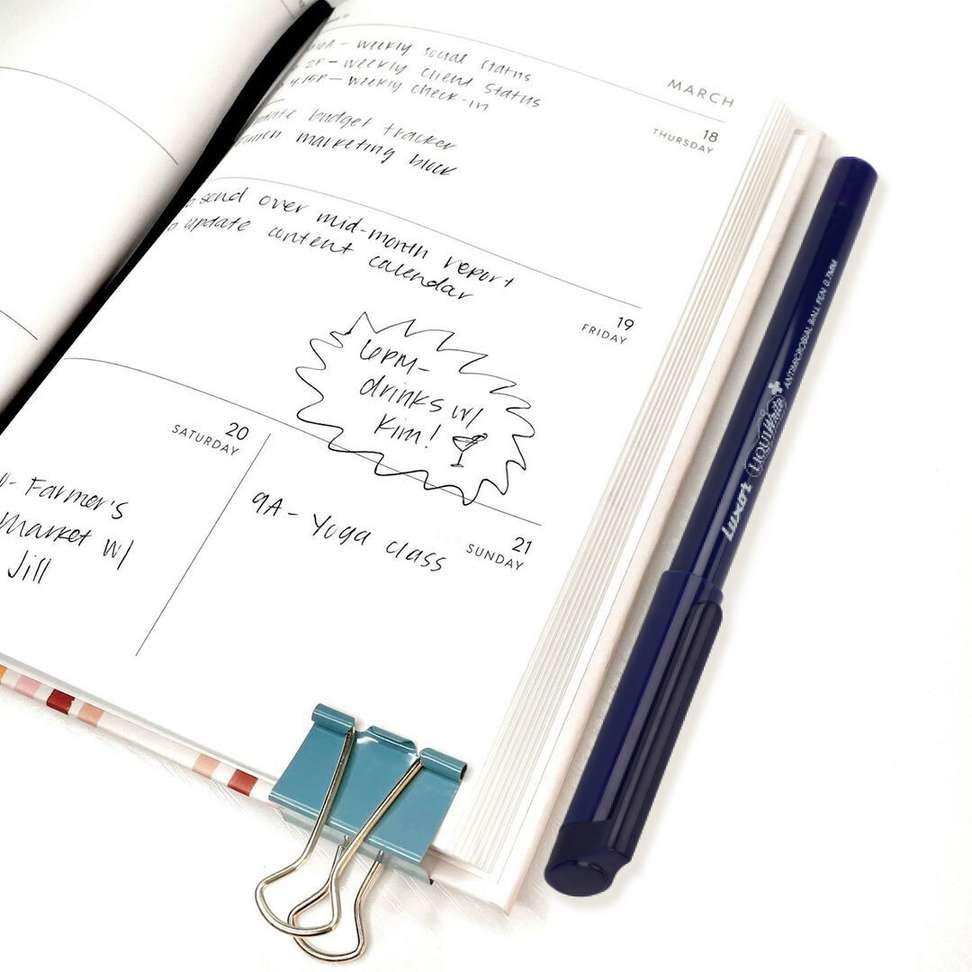 MARCH
- weekly social status
2P - weekly client status
4:15P - weekly check-in
18
THURSDAY
budget tracker
marketing block
send over mid-month report
update content calendar
19
FRIDAY
6PM-
drinks w/
Kim!
20
SATURDAY
- Farmer's
Market w/
Jill
21
SUNDAY
9A - Yoga class
Luxor LIQUIWrite ANTIMICROBIAL BALL PEN 0.7MM